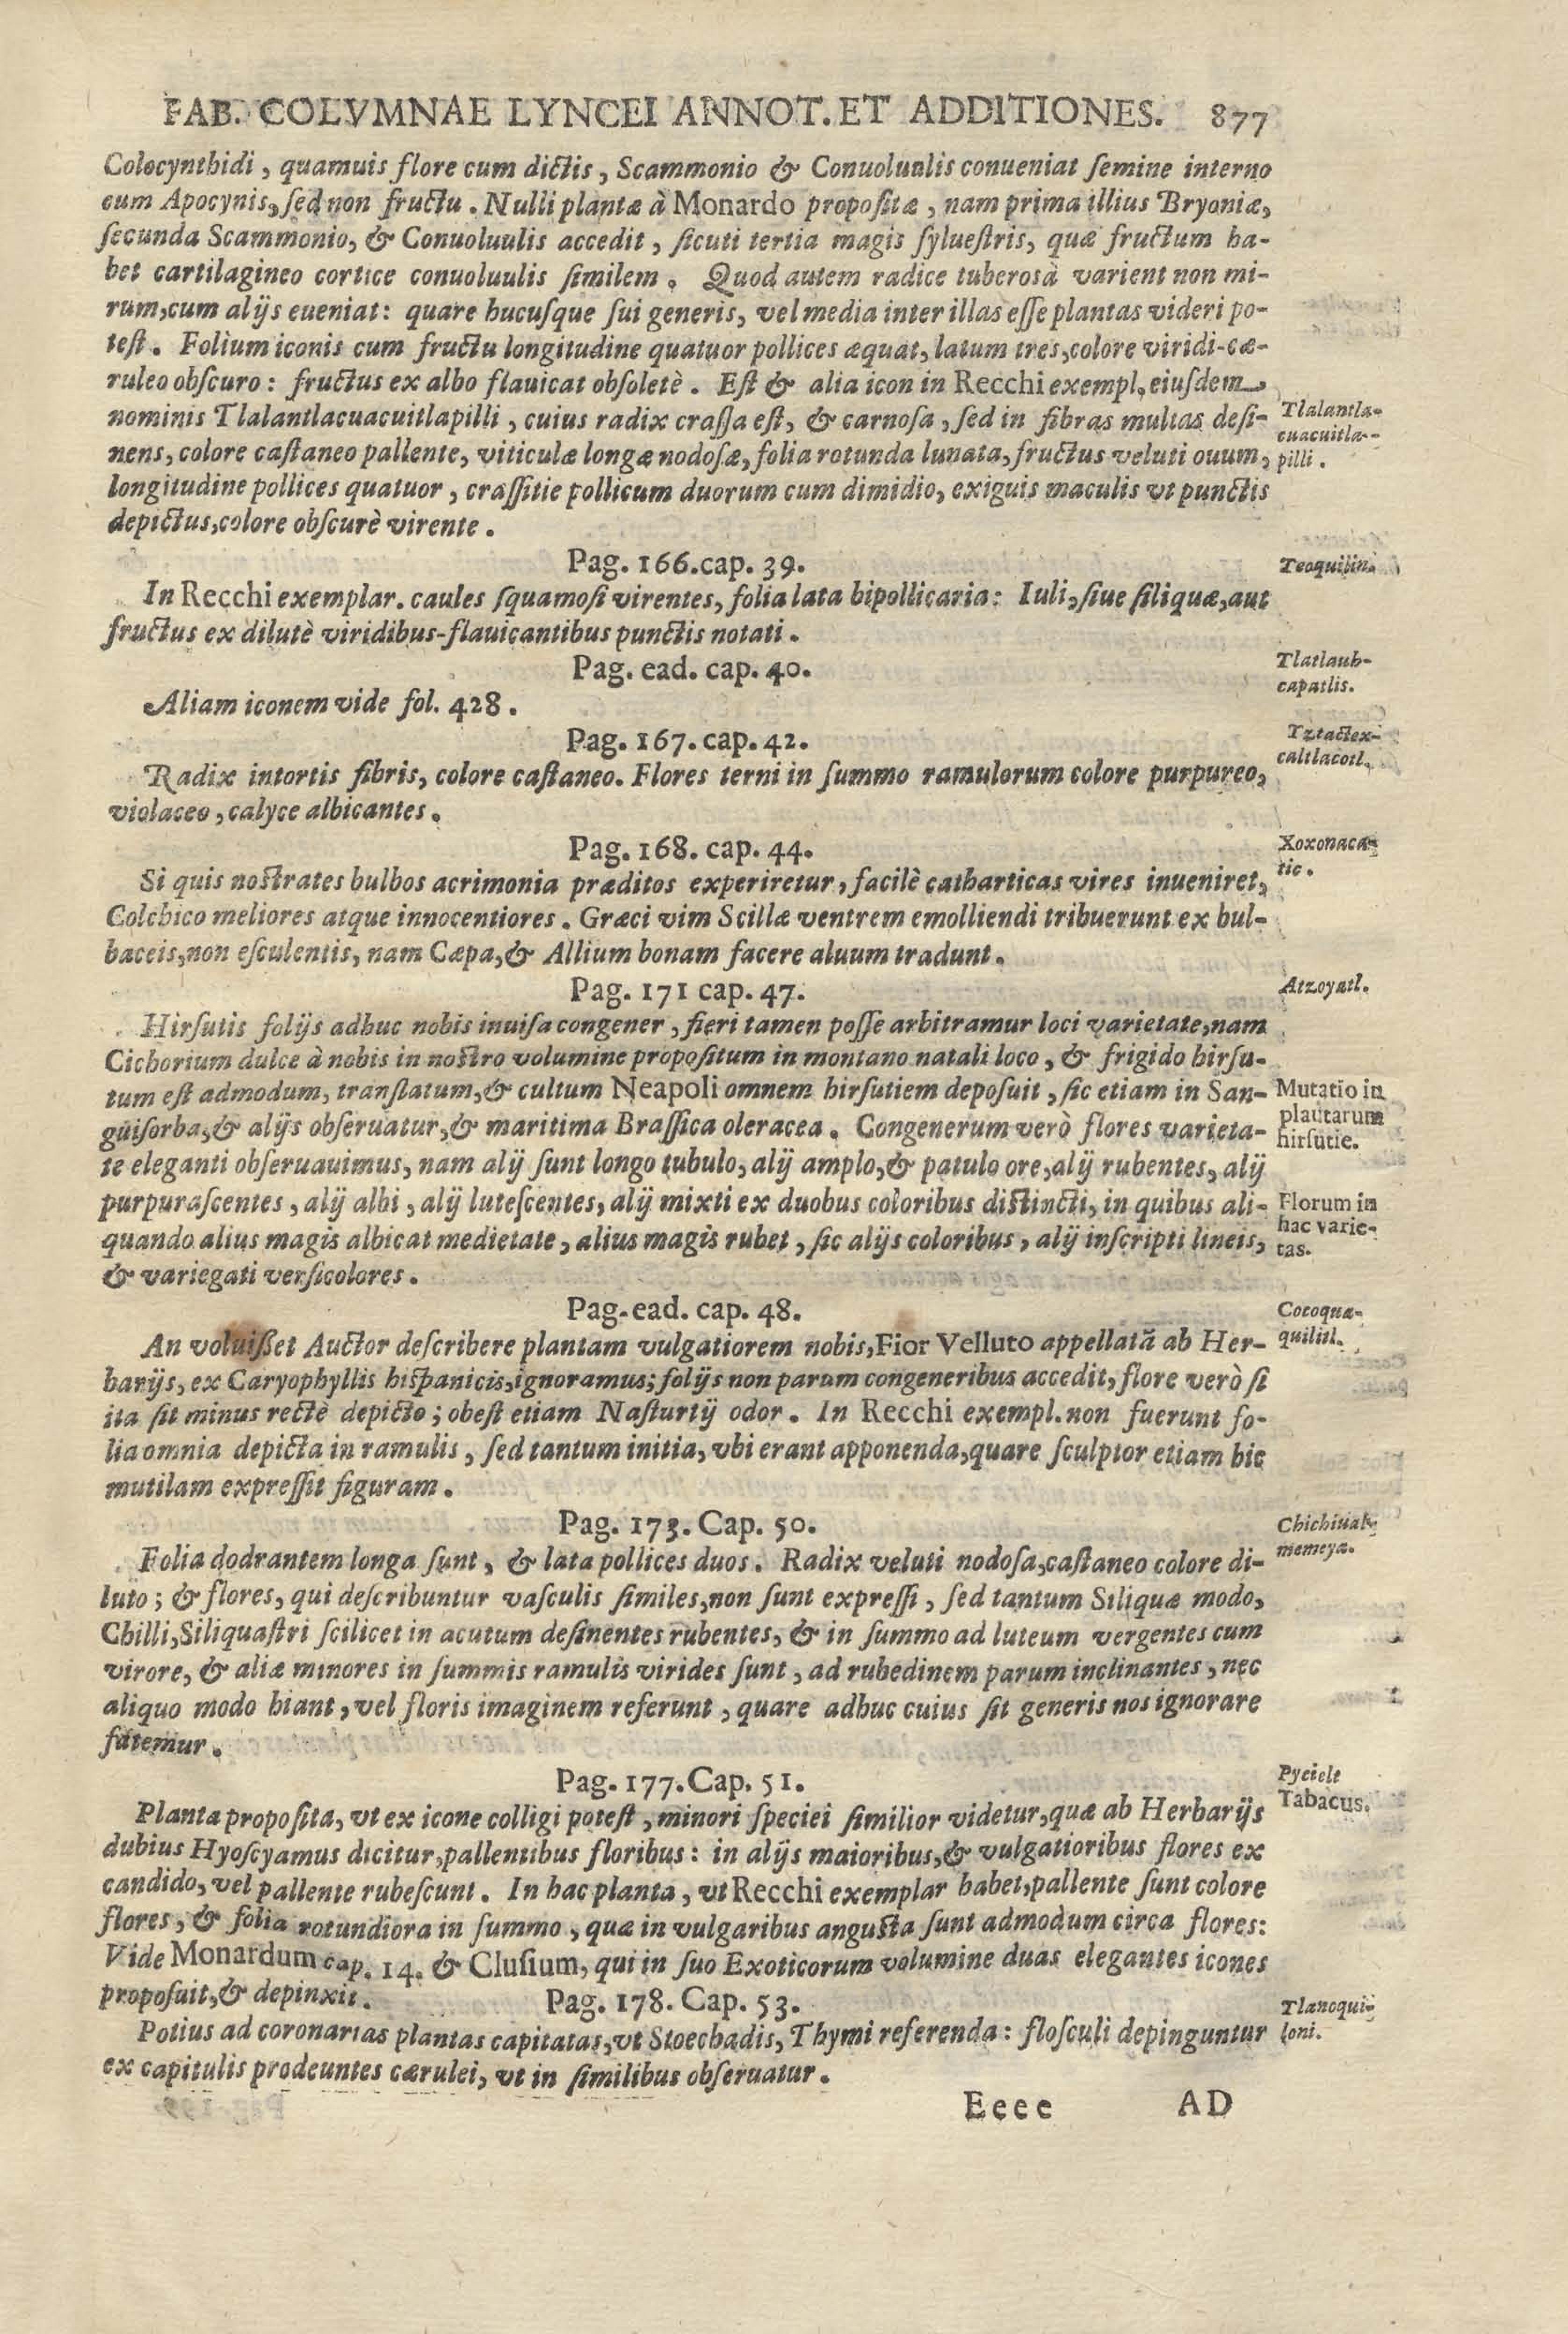 FAB. COLVMNAE LYNCEI ANNOT. ET ADDITIONES. 877
Colocynthidi, quamuis flore cum dictis, Scammonio & Conuoluulis conueniat ſemine interno
cum Apocynis, ſed non fructu. Nulli plantæ à Monardo propoſitæ, nam prima illius Bryoniæ,
ſecunda Scammonio, & Conuoluulis accedit, ſicuti tertia magis ſylueſtris, quæ fructum ha-
bet cartilagineo cortice conuoluulis ſimilem. Quod autem radice tuberosà varient non mi-
rum, cum alijs eueniat: quare hucuſque ſui generis, vel media inter illas eſſe plantas videri po-
teſt. Folium iconis cum fructu longitudine quatuor pollices æquat, latum tres, colore viridi-cæ-
ruleo obſcuro: fructus ex albo flauicat obſoletè. Eſt & alia icon in Recchi exempl. eiuſdem
nominis Tlalantlacuacuitlapilli, cuius radix craſſa eſt, & carnoſa, ſed in fibras multas deſi-
nens, colore caſtaneo pallente, viticulæ longæ nodoſæ, folia rotunda lunata, fructus veluti ouum,
longitudine pollices quatuor, craſſitie pollicum duorum cum dimidio, exiguis maculis vt punctis
depictus, colore obſcurè virente.
Tlalantla-
cuacuitla-
pilli.
Pag. 166. cap. 39.
Teoquilin.
In Recchi exemplar. caules ſquamoſi virentes, folia lata bipollicaria: Iuli, ſiue ſiliquæ, aut
fructus ex dilutè viridibus-flauicantibus punctis notati.
Pag. ead. cap. 40.
Tlatlauh-
capatlis.
Aliam iconem vide fol. 428.
Pag. 167. cap. 42.
Tztactex-
caltlacotl.
Radix intortis fibris, colore caſtaneo. Flores terni in ſummo ramulorum colore purpureo,
violaceo, calyce albicantes.
Pag. 168. cap. 44.
Xoxonaca-
tic.
Si quis noſtrates bulbos acrimonia præditos experiretur, facilè catharticas vires inueniret,
Colchico meliores atque innocentiores. Græci vim Scillæ ventrem emolliendi tribuerunt ex bul-
baceis, non eſculentis, nam Cæpa, & Allium bonam facere aluum tradunt.
Pag. 171 cap. 47.
Atzoyatl.
Hirſutis folijs adhuc nobis inuiſa congener, fieri tamen poſſe arbitramur loci varietate, nam
Cichorium dulce à nobis in noſtro volumine propoſitum in montano natali loco, & frigido hirſu-
tum eſt admodum, tranſlatum, & cultum Neapoli omnem hirſutiem depoſuit, ſic etiam in San-
guiſorba, & alijs obſeruatur, & maritima Braſſica oleracea. Congenerum verò flores varieta-
te eleganti obſeruauimus, nam alij ſunt longo tubulo, alij amplo, & patulo ore, alij rubentes, alij
purpuraſcentes, alij albi, alij luteſcentes, alij mixti ex duobus coloribus diſtincti, in quibus ali-
quando alius magis albicat medietate, alius magis rubet, ſic alijs coloribus, alij inſcripti lineis,
& variegati verſicolores.
Mutatio in
plantarum
hirſutie.
Florum in
hac varie-
tas.
Pag. ead. cap. 48.
Cocoquæ-
quilitl.
An voluiſſet Auctor deſcribere plantam vulgatiorem nobis, Fior Velluto appellatã ab Her-
barijs, ex Caryophyllis hiſpanicis, ignoramus; folijs non parum congeneribus accedit, flore verò ſi
ita ſit minus rectè depicto; obeſt etiam Naſturtij odor. In Recchi exempl. non fuerunt fo-
lia omnia depicta in ramulis, ſed tantum initia, vbi erant apponenda, quare ſculptor etiam hic
mutilam expreſſit figuram.
Pag. 173. Cap. 50.
Chichiual-
memeya.
Folia dodrantem longa ſunt, & lata pollices duos. Radix veluti nodoſa, caſtaneo colore di-
luto; & flores, qui deſcribuntur vaſculis ſimiles, non ſunt expreſſi, ſed tantum Siliquæ modo,
Chilli, Siliquaſtri ſcilicet in acutum deſinentes rubentes, & in ſummo ad luteum vergentes cum
virore, & aliæ minores in ſummis ramulis virides ſunt, ad rubedinem parum inclinantes, nec
aliquo modo hiant, vel floris imaginem referunt, quare adhuc cuius ſit generis nos ignorare
fatemur.
Pag. 177. Cap. 51.
Pycielt
Tabacus.
Planta propoſita, vt ex icone colligi poteſt, minori ſpeciei ſimilior videtur, quæ ab Herbarijs
dubius Hyoſcyamus dicitur, pallentibus floribus: in alijs maioribus, & vulgatioribus flores ex
candido, vel pallente rubeſcunt. In hac planta, vt Recchi exemplar habet, pallente ſunt colore
flores, & folia rotundiora in ſummo, quæ in vulgaribus anguſta ſunt admodum circa flores:
Vide Monardum cap. 14. & Cluſium, qui in ſuo Exoticorum volumine duas elegantes icones
propoſuit, & depinxit.
Pag. 178. Cap. 53.
Tlanoqui-
loni.
Potius ad coronarias plantas capitatas, vt Stoechadis, Thymi referenda: floſculi depinguntur
ex capitulis prodeuntes cærulei, vt in ſimilibus obſeruatur.
Eeee AD